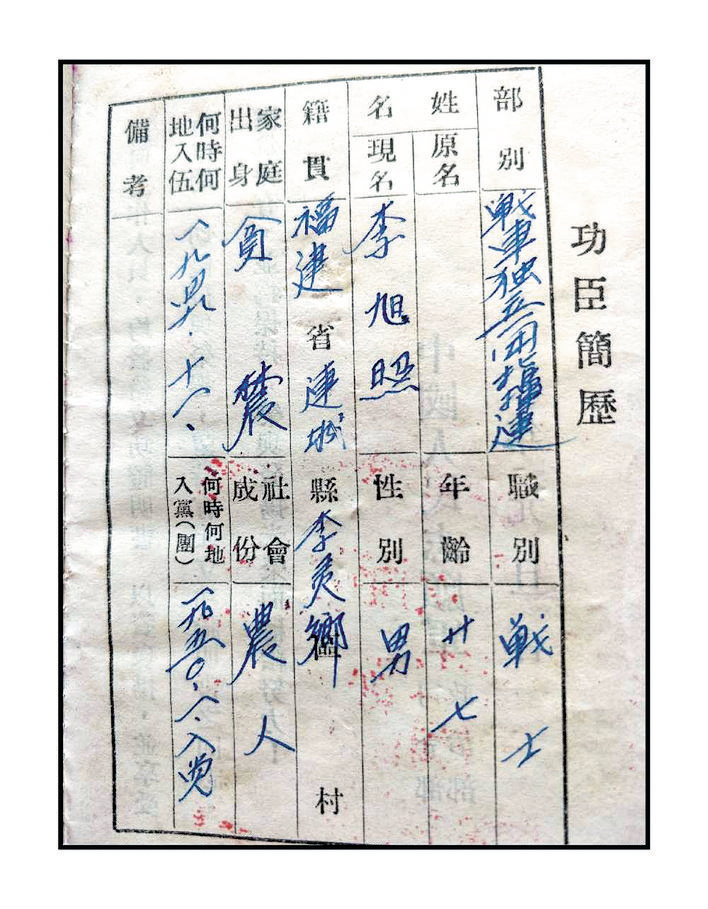 功臣簡歷
部別 戦車独立一團指揮連 職別 戦士
姓名 原名 年齡 廿七
現名 李旭照 性別 男
籍貫 福建省連城縣李夷鄉村
家庭出身 貧農 社會成份 農人
何時何地入伍 一九四九.十一. 何時何地入黨(團) 一九五〇.八.入党
備考